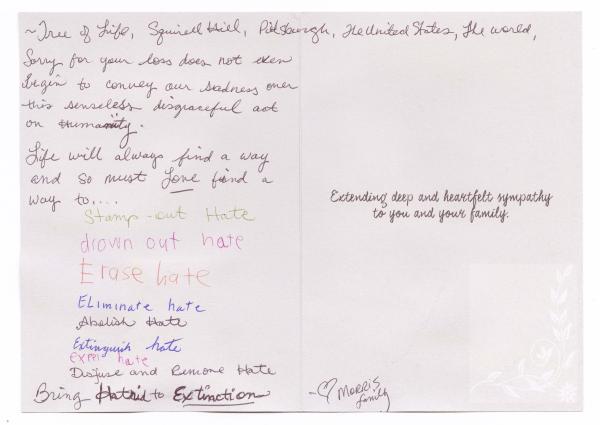 ~Tree of Life, Squirell Hill, Pittsburgh, The United States, The world,
Sorry for your loss does not even
begin to convey our sadness over
this senseless disgraceful act
on Humanity.
Life will always find a way
and so must Love find a
way to....
Stamp-out Hate
drown out hate
Erase hate
Eliminate hate
Abolish Hate
Extinguish hate
Expel hate
Disfuse and Remove Hate
Bring Hatrid to Extinction
Extending deep and heartfelt sympathy
to you and your family.
-♡ Morris
family